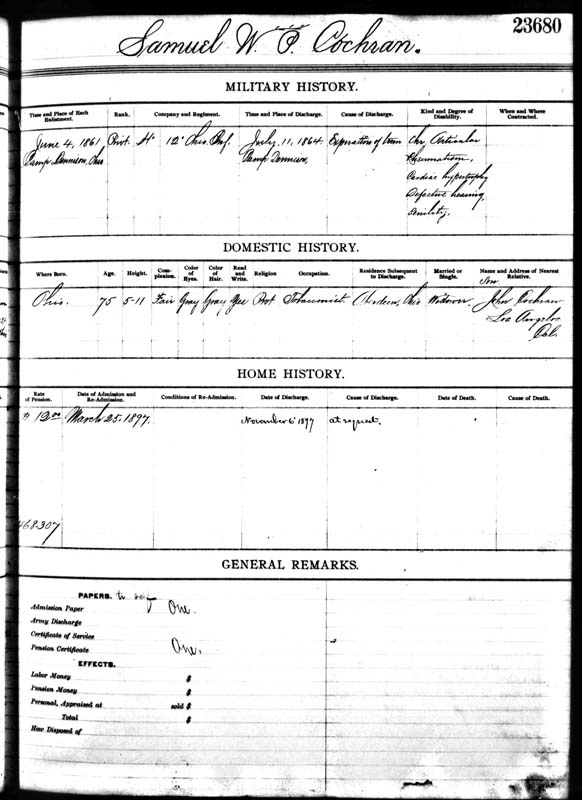 23680
Samuel W. P. Cochran.
MILITARY HISTORY.
Time and Place of Each Enlistment. Rank. Company and Regiment. Time and Place of Discharge. Cause of Discharge. Kind and Degree of Disability. When and Where Contracted.
June 4, 1861 Privt. H" 12" Ohio Inf. July 11, 1864 Expiration of term Chr. Articular
Camp Dennison, Ohio Camp Dennison, Rheumatism,
Cardiac hypertrophy
Defective hearing,
Senility.
DOMESTIC HISTORY.
Where Born. Age. Height. Complexion. Color of Eyes. Color of Hair. Read and Write. Religion Occupation. Residence Subsequent to Discharge. Married or Single. Name and Address of Nearest Relative.
Son
Ohio. 75 5-11 Fair Gray Gray Yes Prot Tobacconist. Ohio Widower. John Cochran
Los Angelos
Cal.
HOME HISTORY.
Rate of Pension. Date of Admission and Re-Admission. Conditions of Re-Admission. Date of Discharge. Cause of Discharge. Date of Death. Cause of Death.
$ 12 00 March 25, 1897. November 6" 1897 at request.
468.307
GENERAL REMARKS.
PAPERS.
Admission Paper One.
Army Discharge
Certificate of Service
Pension Certificate One.
EFFECTS.
Labor Money $
Pension Money $
Personal, Appraised at sold $
Total $
How Disposed of